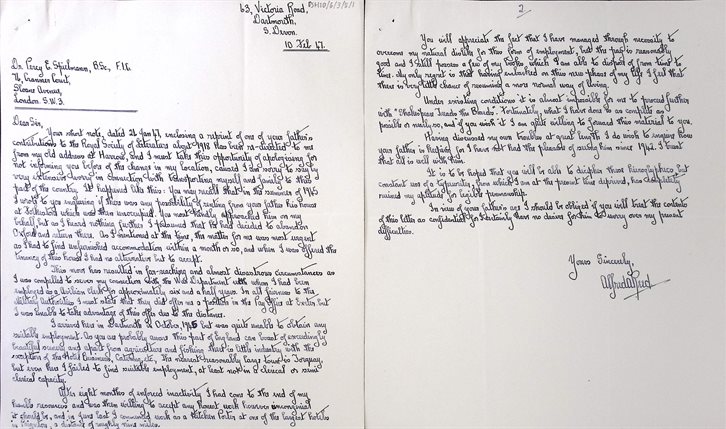 63, Victoria Road,
Dartmouth,
S. Devon.
10 Feb 47.
Dr. Percy E. Spielmann, B.Sc., F.I.C.
The Cranmer Court,
Sloane Avenue,
London. S.W.3.
Dear Sir,
Your short note, dated 21 Jan 47, enclosing a reprint of one of your father's
contributions to the Royal Society of Literature about 1918 has been re-directed to me
from my old address at Harrow, and I must take this opportunity of apologising for
not informing you before of the change in my location, caused I am sorry to say by
very extensive worry in connection with transporting myself and family to this
part of the country. It happened like this: You may recall that in the summer of 1945
I wrote to you inquiring if there was any possibility of renting from your father his house
at Folkestone which was then unoccupied. You most kindly approached him on my
behalf, but as I heard nothing further I presumed that he had decided to abandon
Oxford and return there. As I mentioned at the time, the matter for me was most urgent
as I had to find unfurnished accommodation within a month or so, and when I was offered the
tenancy of this house I had no alternative but to accept.
This move has resulted in far-reaching and almost disastrous circumstances as
I was compelled to sever my connection with the War Department with whom I had been
employed as a civilian clerk for approximately six and a half years. In all fairness to the
military authorities I must state that they did offer me a position in the Pay Office at Exeter, but
I was unable to take advantage of this offer due to the distance.
I arrived here in Dartmouth in October, 1945 but was quite unable to obtain any
suitable employment. As you are probably aware this part of England can boast of exceedingly
beautiful scenery and apart from agriculture and fishing there is little industry with the
exception of the Hotel Business, Catering, etc. The nearest reasonably large town is Torquay,
but even there I failed to find suitable employment, at least not in a clerical or semi
clerical capacity.
After eight months of enforced inactivity I had come to the end of my
humble resources and was then willing to accept any honest work however uncongenial
it should be, and in June last I commenced work as a Kitchen Porter at one of the largest hotels
in Paignton, a distance of roughly nine miles.
2.
You will appreciate the fact that I have managed through necessity to
overcome my natural dislike for this form of employment, but the pay is reasonably
good and I still possess a few of my books which I am able to dispose of from time to
time. My only regret is that having embarked on this new phase of my life I feel that
there is very little chance of resuming a more normal way of living.
Under existing conditions it is almost impossible for me to proceed further
with "Shakespeare
Fortunately, what I have done is as complete as
possible or nearly so, and if you wish it I am quite willing to forward this material to you.
Having discussed my own troubles at great length I do wish to inquire how
your father is keeping for I have not had the pleasure of seeing him since 1942. I trust
that all is well with him.
It is to be hoped that you will be able to decipher these hieroglyphics, but
constant use of a typewriter, from which I am at the present time deprived, has completely
ruined my aptitude for legible penmanship.
In view of your father's age I should be obliged if you will treat the contents
of this letter as confidential for I certainly have no desire for him to worry over my present
difficulties.
Yours Sincerely,
Alfred